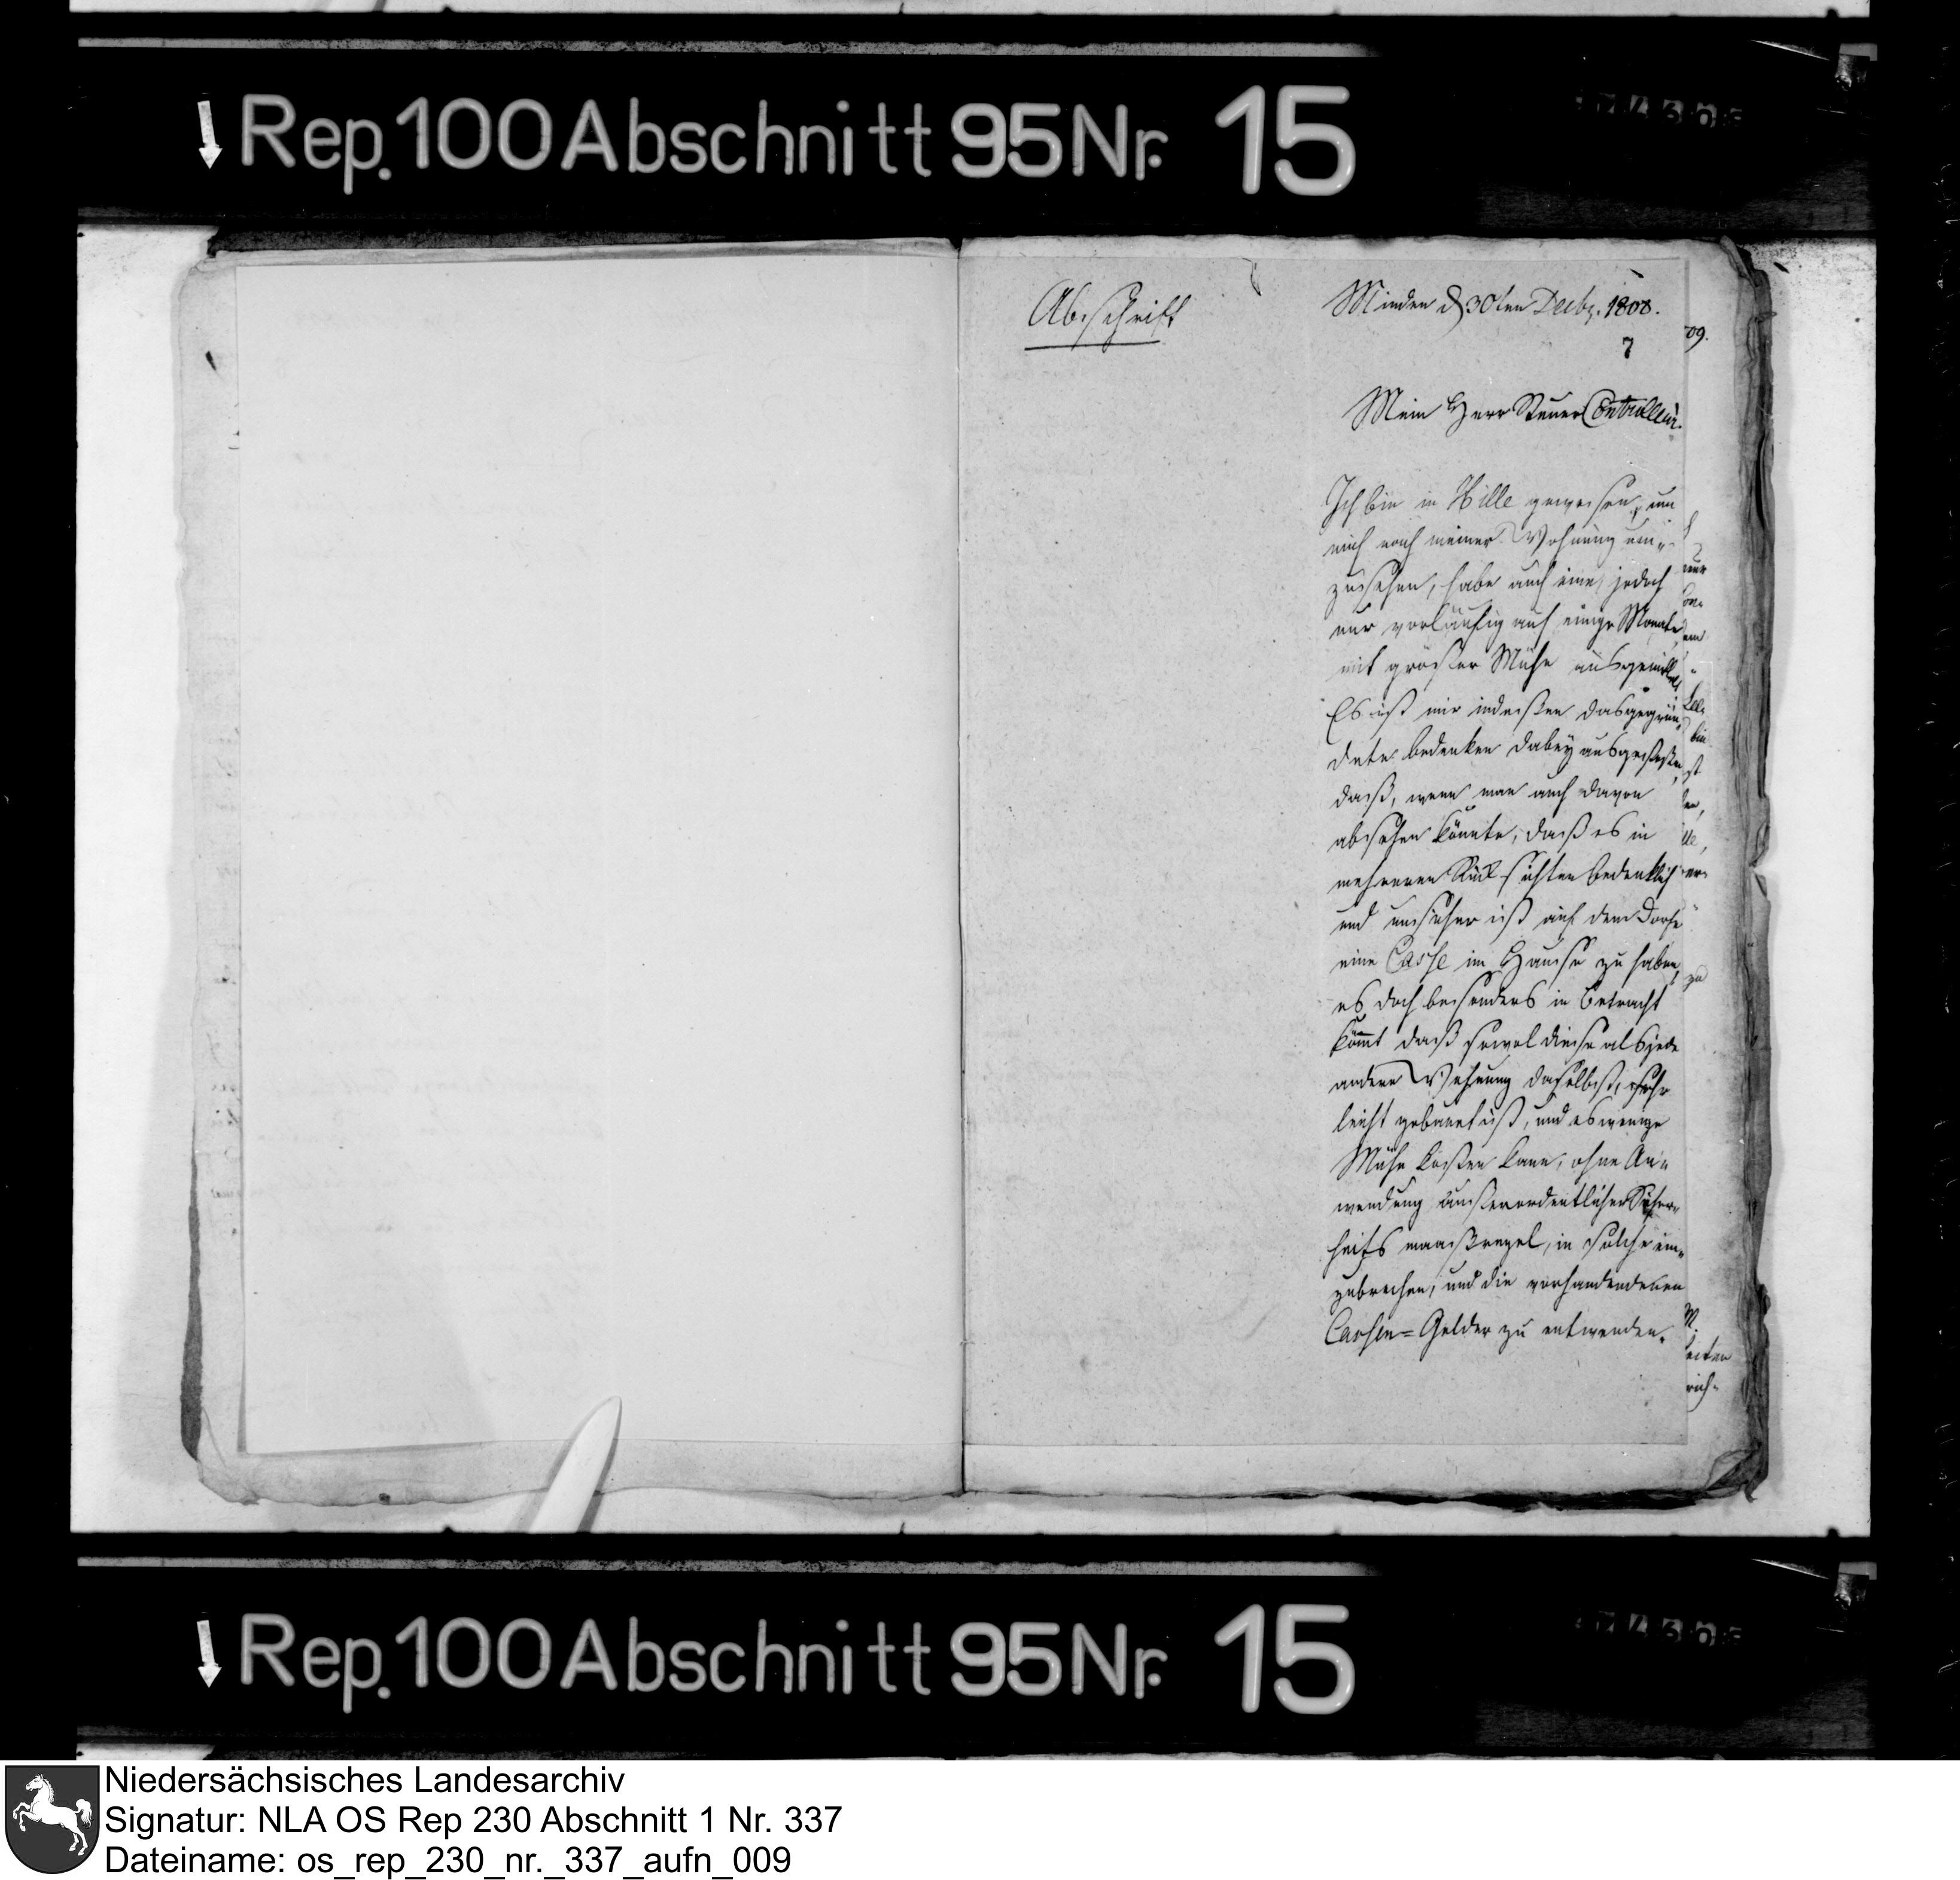 Rep. 100 Abschnitt 95 Nr. 15
Abschrift
Minden d 30ten Decbr. 1808.
7
09.
Mein Herr Steuer Controlleur.
Ich bin in Hille gewesen, um
mich nach meiner Wohnung um¬
zusehen, habe auch eine, jedoch
nur vorläufig auf einige Monate
mit größter Mühe ausgemittelt
Es ist mir indessen das gegrün¬
dete bedenken dabey aufgestoßen
daß, wenn man auch davon
absehen könnte, daß es in
mehreren Rücksichten bedenklich
und unsicher ist auf dem Dorfe
eine Casse im Hause zu haben,
es doch besonders in Betracht
kömmt daß sowol diese als jede
andere Wohnung daselbst, sehr
leicht gebauet ist, und es wenige
Mühe kosten kann, ohne An¬
wendung außerordentlicher Sicher¬
heits maaßregel, in solche ein¬
zubrechen, und die vorhandendenen
Cassen=Gelder zu entwenden.
Rep. 100 Abschnitt 95 Nr. 15
Niedersächsisches Landesarchiv
Signatur: NLA OS Rep 230 Abschnitt 1 Nr. 337
Dateiname: os_rep_230_nr._337_aufn_009